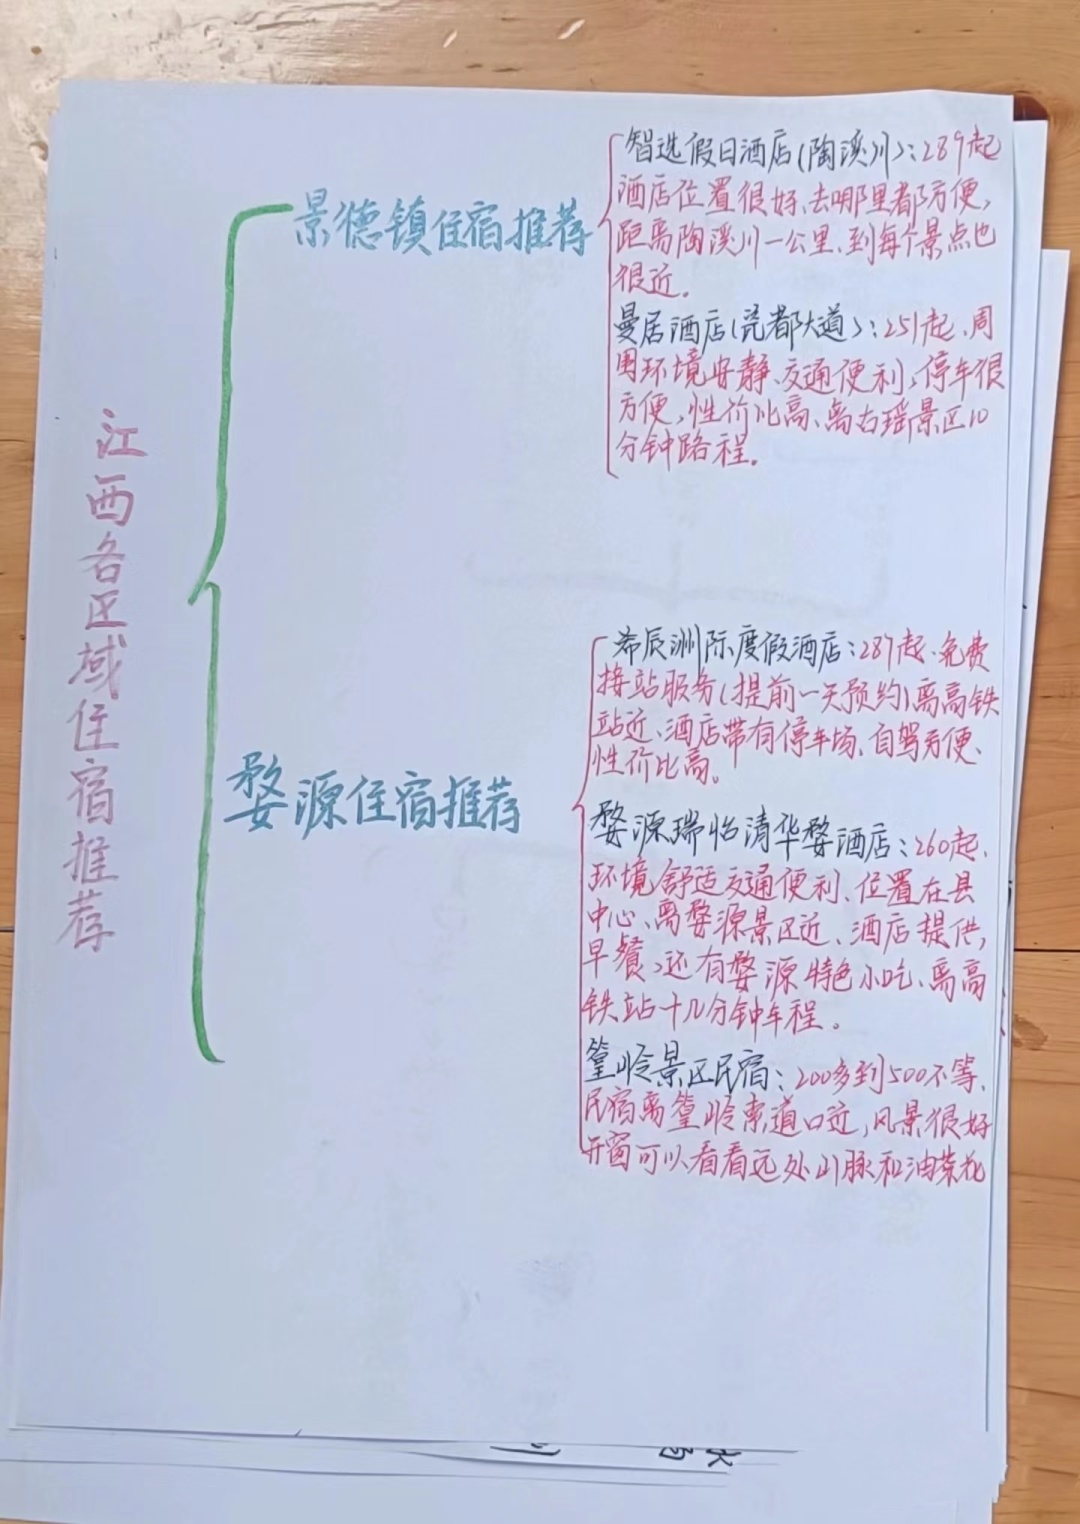 江西各区域住宿推荐
景德镇住宿推荐
智选假日酒店(陶溪川):289起
酒店位置很好、去哪里都方便,
距离陶溪川一公里、到每个景点也
很近。
曼居酒店(瓷都大道):251起、周
围环境安静、交通便利,停车很
方便,性价比高、离古瑶景区10
分钟路程。
婺源住宿推荐
希辰洲际度假酒店:287起.免费
接站服务(提前一天预约)离高铁
站近、酒店带有停车场、自驾方便、
性价比高。
婺源瑞怡清华婺酒店:260起、
环境舒适交通便利、位置在县
中心、离婺源景区近、酒店提供,
早餐,还有婺源特色小吃、离高
铁站十几分钟车程。
篁岭景区民宿:200多到500不等、
民宿离篁岭索道口近,风景很好
开窗可以看看远处山脉和油菜花